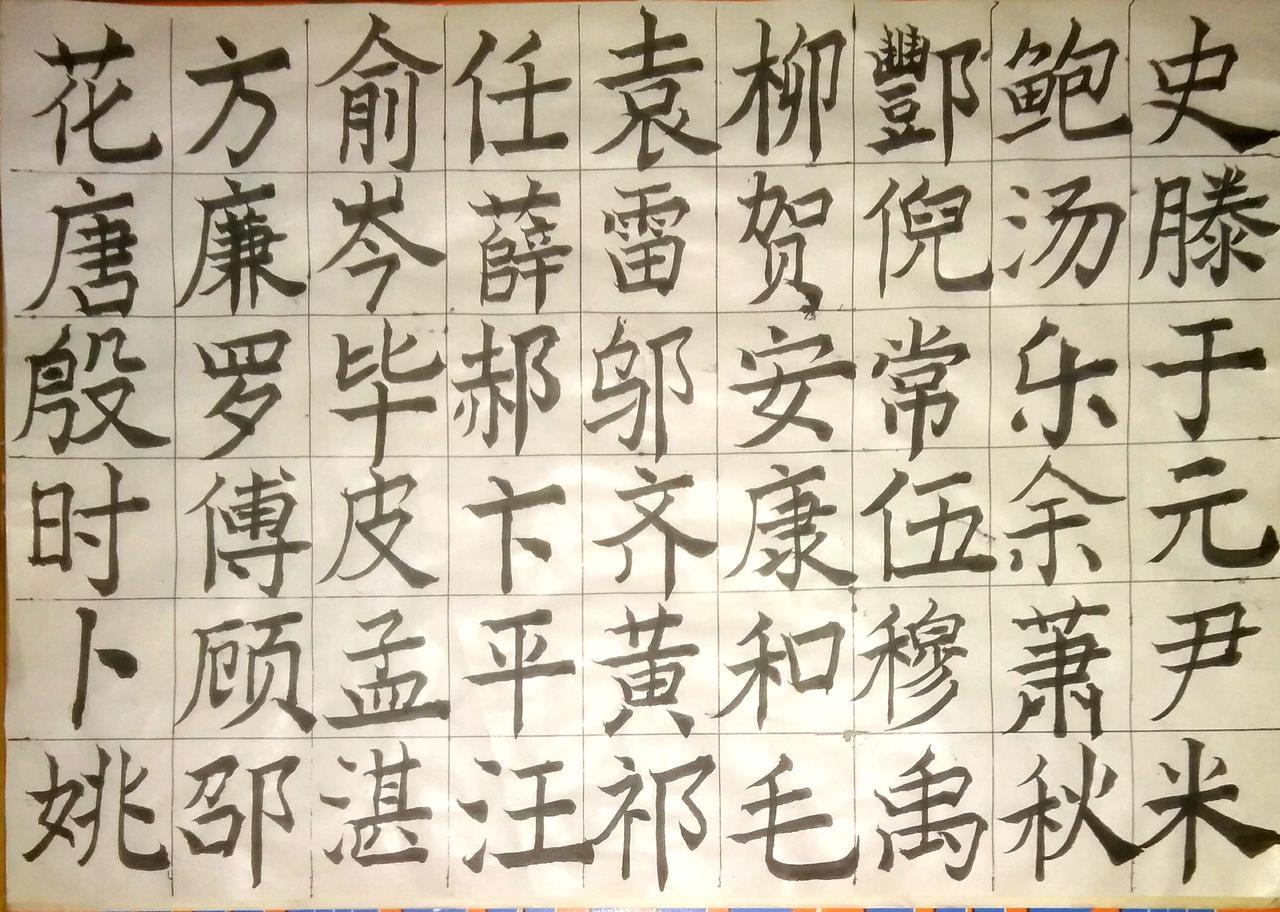 花方俞任袁柳酆鲍史
唐廉岑薛雷贺倪汤滕
殷罗毕郝邬安常乐于
时傅皮卞齐康伍余元
卜顾孟平黄和穆萧尹
姚邵湛汪祁毛禹秋米